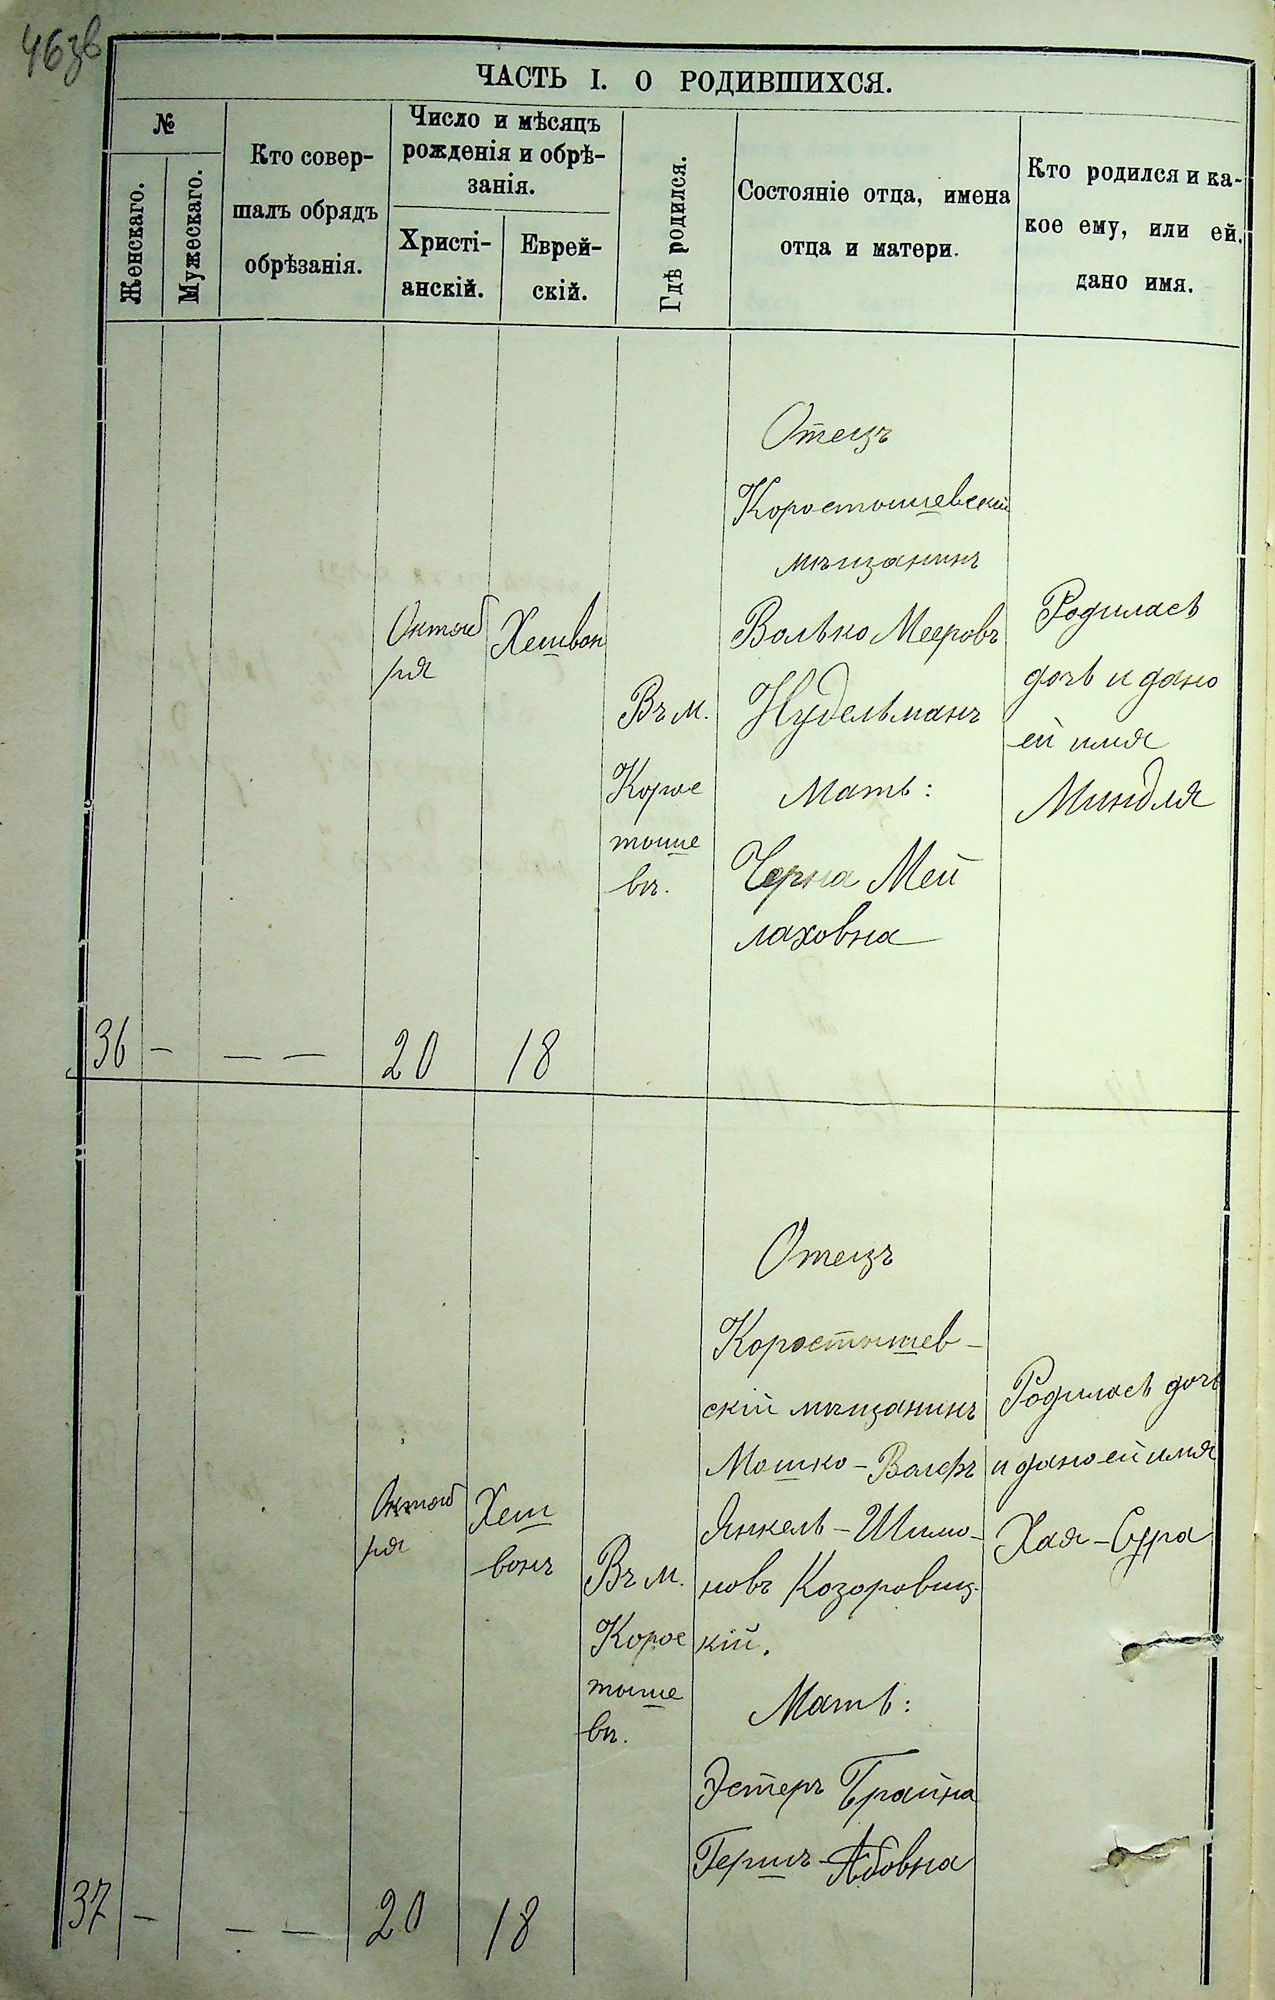 463в
ЧАСТЬ I. О РОДИВШИХСЯ.
№
Женскаго.
Мужескаго.
Кто совер-
шалъ обрядъ
обрѣзанія.
Число и мѣсяцъ
рожденія и обрѣ-
занія.
Христі-
анскій.
Еврей-
скій.
Гдѣ родился.
Состояніе отца, имена
отца и матери.
Кто родился и ка-
кое ему, или ей.
дано имя.
36
—
— —
Октяб
ря
20
Хешвон
18
Въ м.
Корос
тыше
вѣ.
Отецъ
Коростышевскій
мѣщанинъ
Волько Мееровъ
Нудельманъ
Мать:
Черна Мей
лаховна
Родилась
дочь и дано
ей имя
Миндля
37
—
— —
Октяб
ря
20
Хеш
вонъ
18
Въ м.
Корос
тыше
вѣ.
Отецъ
Коростышев-
скій мѣщанинъ
Мошко-Волфъ
Янкель-Шимо-
новъ Козоровиц-
кій.
Мать:
Эстеръ Брайна
Гершъ-Абовна
Родилась дочь
и дано ей имя
Хая-Сура